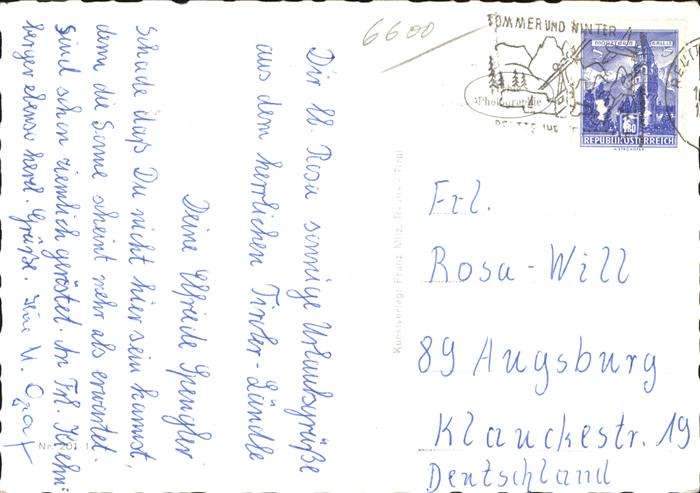 6600
SOMMER UND WINTER
REUTTE
REPUBLIK ÖSTERREICH
Kunstverlag Franz Milz, Reutte-Tirol
Frl.
Rosa Will
89 Augsburg
Klauckestr. 19
Deutschland
Dir lb. Rosa sonnige Urlaubsgrüße
aus dem herrlichen Tiroler-Ländle
Deine Elfriede Spengler
Schade daß Du nicht hier sein kannst,
denn die Sonne scheint mehr als erwartet.
Sind schon ziemlich geröstet. An Frl.
berger ebenso herzl. Grüße.